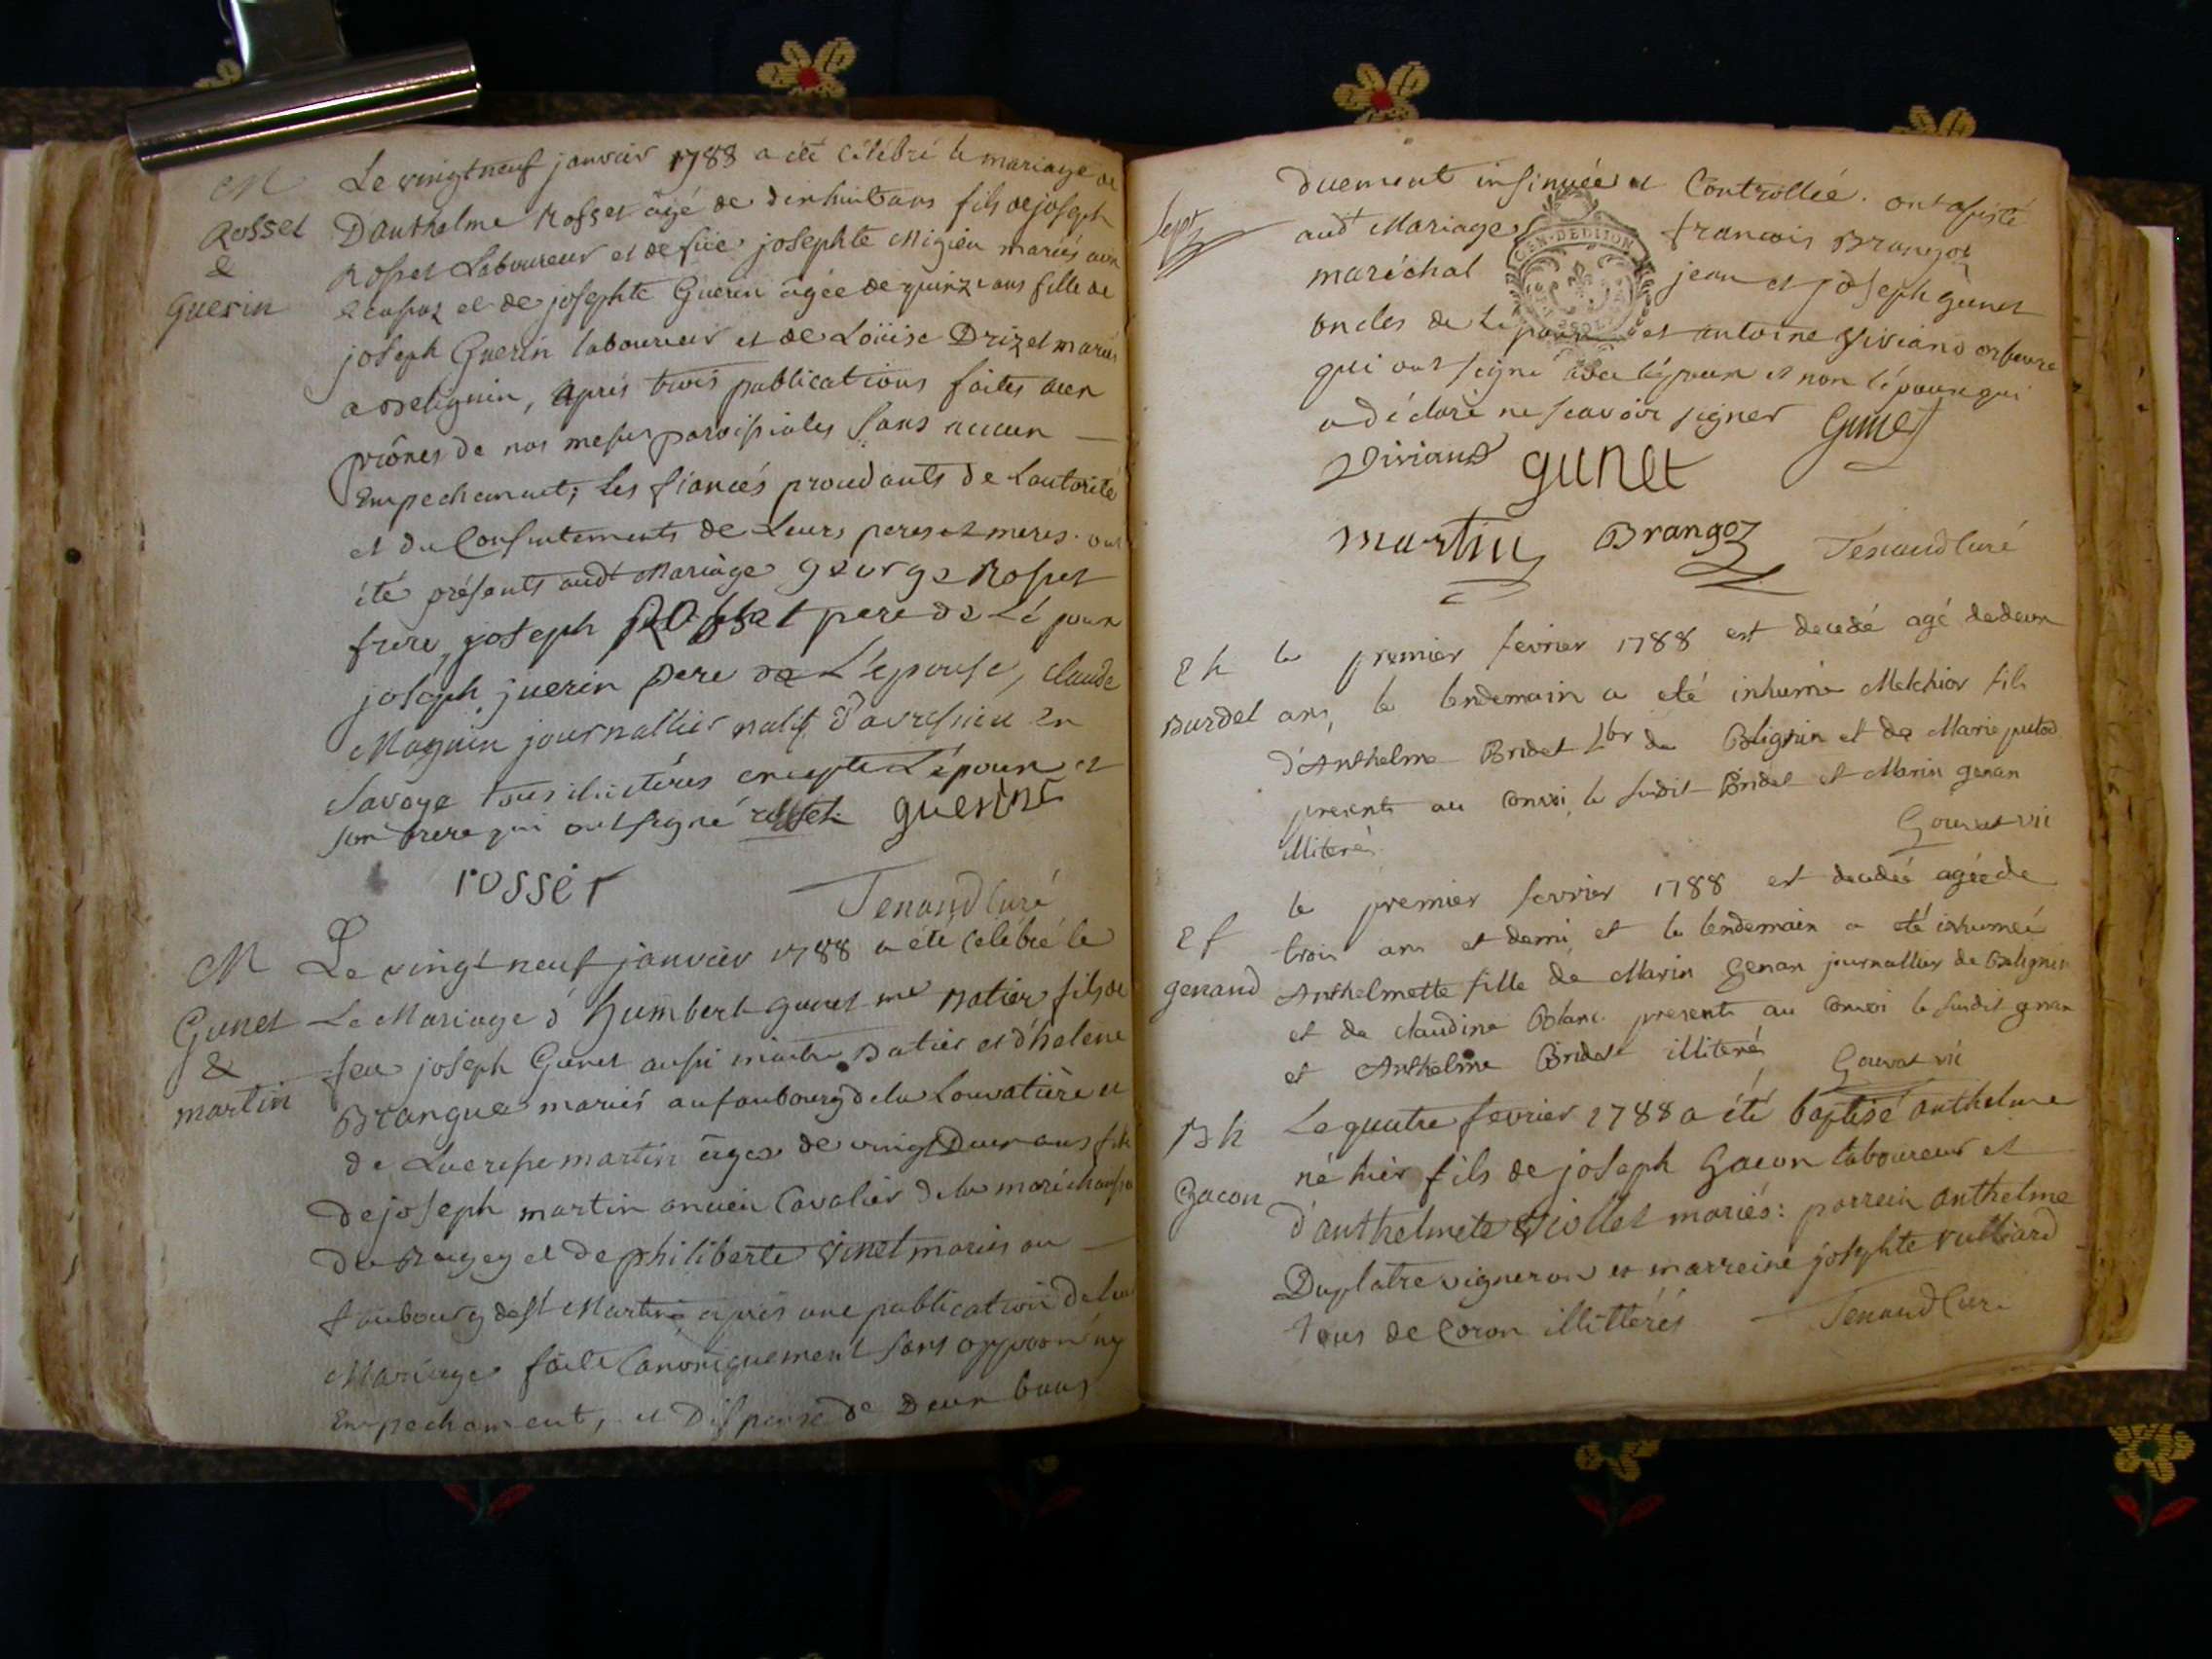 M
Rosset
&
Guerin
Le vingt neuf janvier 1788 a été célébré le mariage de
D'anthelme Rosset âgé de dix huit ans fils de joseph
Rosset Laboureur et de füe josephte Migieu mariés
et de josephte Guerin âgée de quinze ans fille de
joseph Guerin laboureur et de Loüise Drizet mariés
a Belignin, après trois publications faites aux
prônes de nos messes paroissiales sans aucun
Empechement; Les fiancés procedants de Lautorité
et du Consentements de Leurs peres et meres. ont
été présents audt Mariage george Rosset
frere, joseph Rosset pere de L'époux
joseph guerin pere de L'épouse, claude
Magnin journallier natif en
Savoye tous illictérés excepté L'époux et
son frere qui ont signé rosset guerin
rosser
Tenand Curé
M
Gunet
&
martin
Le vingt neuf janvier 1788 a été célébré le
Le Mariage d'humbert gunet me Batier fils de
feu joseph Gunet aussi maitre Batier et d'helene
Brangue mariés au faubourg de la Louvatière et
de Lucresse martin âgée de vingt Deux ans fille
De joseph martin ancien Cavalier de la maréchaussée
Du Bugey et de philiberte Vinet mariés au
faubourg de St Martin après une publication de leur
Mariage faite Canoniquement sans opposon ny
Empechement, et Dispense de Deux bans
duement insinuée et Controllée. ont assisté
audt Mariage francois Brangoz
maréchal jean et joseph gunet
oncles de L'époux et antoine Viviand orfeuvre
qui ont signé avec l'époux et non l'épouse qui
a déclaré ne scavoir signer Gunet
Viviand gunet
martin Brangoz Tenand Curé
Sh
Burdet
le premier fevrier 1788 est decedé agé de deux
ans, le lendemain a eté inhumé Melchior fils
d'Anthelme Bridet Lbr de Belignin et de Marie putod
presents au convoi, le susdit Bridet et Marin genan
illiterés Gouvat vic
Sf
genand
le premier fevrier 1788 est decedée agée de
trois ans et demi et le lendemain a eté inhumée
Anthelmette fille de Marin Genan journallier de Belignin
et de claudine Blanc presents au convoi le susdit genan
et Anthelme Bridet illiterés Gouvat vic
Bh
Gacon
Le quatre fevrier 1788 a été baptisé anthelme
né hier fils de joseph Gacon laboureur et
d'anthelmete Viollet mariés: parrein anthelme
Duplatre vigneron et marreine josephte vulliard
tous de Coron illittérés Tenand Curé